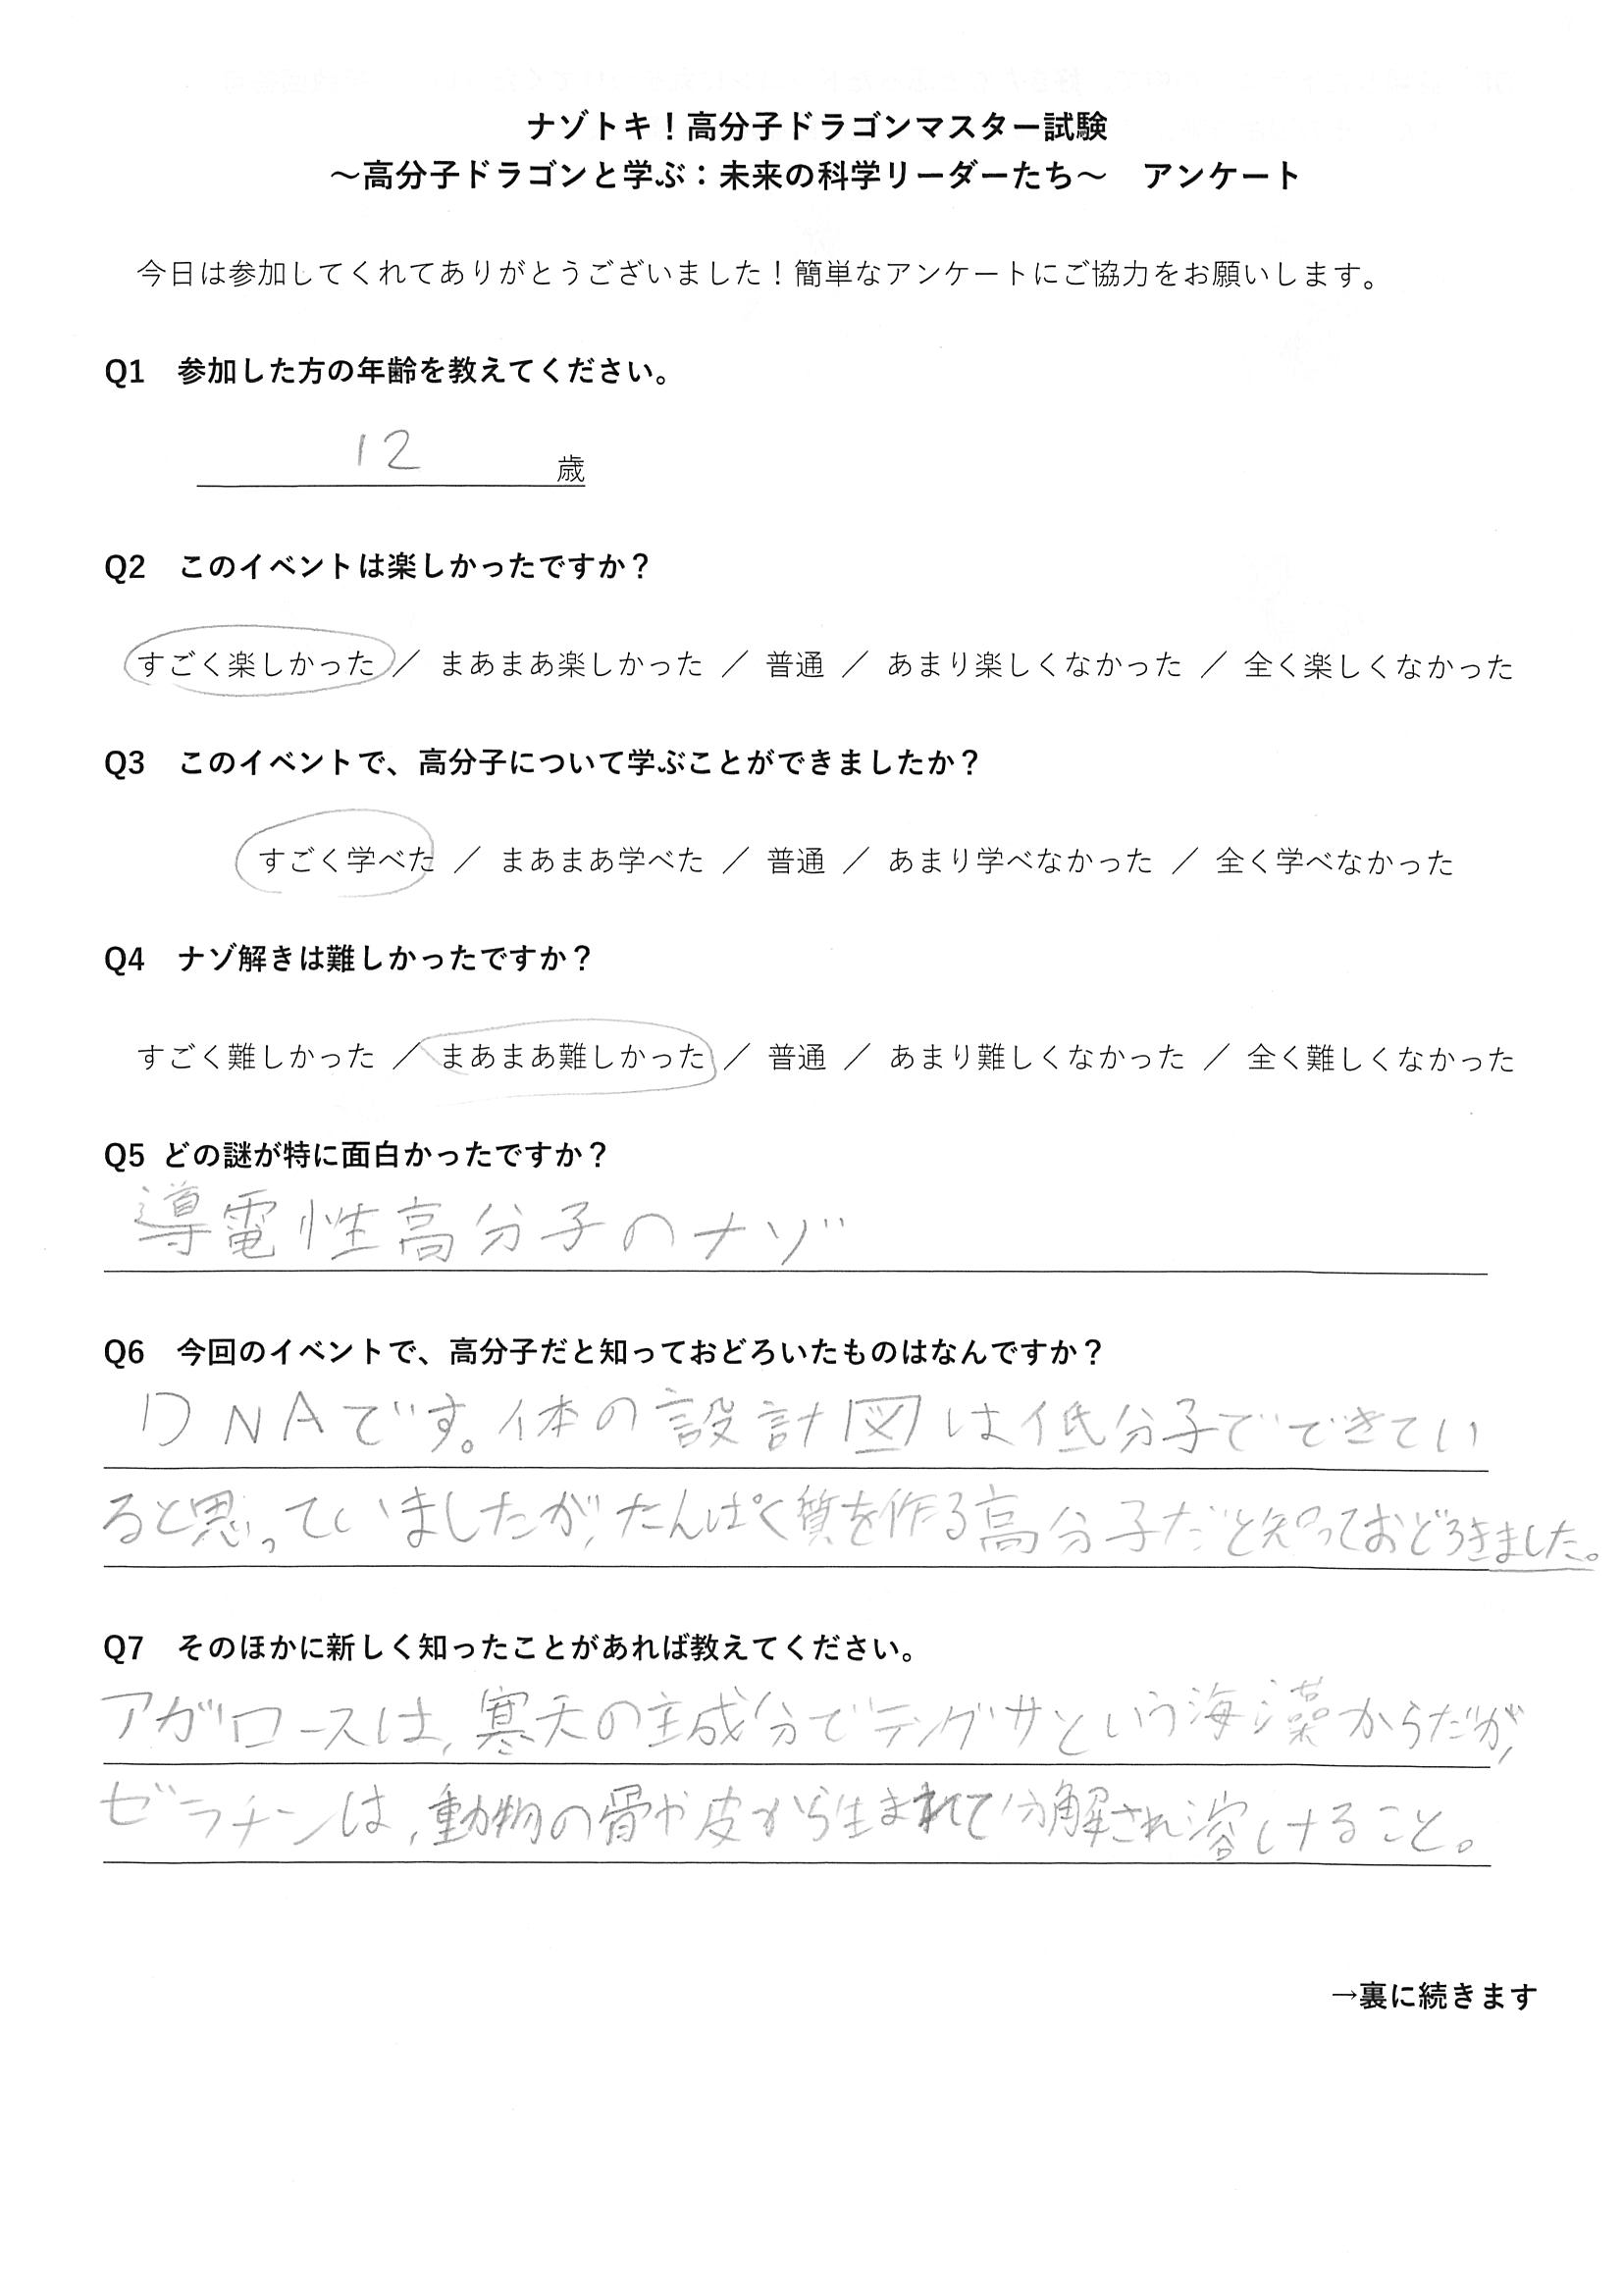 ナゾトキ！高分子ドラゴンマスター試験
～高分子ドラゴンと学ぶ：未来の科学リーダーたち～　アンケート
今日は参加してくれてありがとうございました！簡単なアンケートにご協力をお願いします。
Q1　参加した方の年齢を教えてください。
12 歳
Q2　このイベントは楽しかったですか？
すごく楽しかった ／ まあまあ楽しかった ／ 普通 ／ あまり楽しくなかった ／ 全く楽しくなかった
Q3　このイベントで、高分子について学ぶことができましたか？
すごく学べた ／ まあまあ学べた ／ 普通 ／ あまり学べなかった ／ 全く学べなかった
Q4　ナゾ解きは難しかったですか？
すごく難しかった ／ まあまあ難しかった ／ 普通 ／ あまり難しくなかった ／ 全く難しくなかった
Q5 どの謎が特に面白かったですか？
導電性高分子のナゾ
Q6　今回のイベントで、高分子だと知っておどろいたものはなんですか？
DNAです。体の設計図は低分子でできてい
ると思っていましたが,たんぱく質を作る高分子だと知っておどろきました。
Q7　そのほかに新しく知ったことがあれば教えてください。
アガロースは,寒天の主成分でテングサという海藻からだが,
ゼラチンは,動物の骨や皮から生まれて分解され溶けること。
→裏に続きます